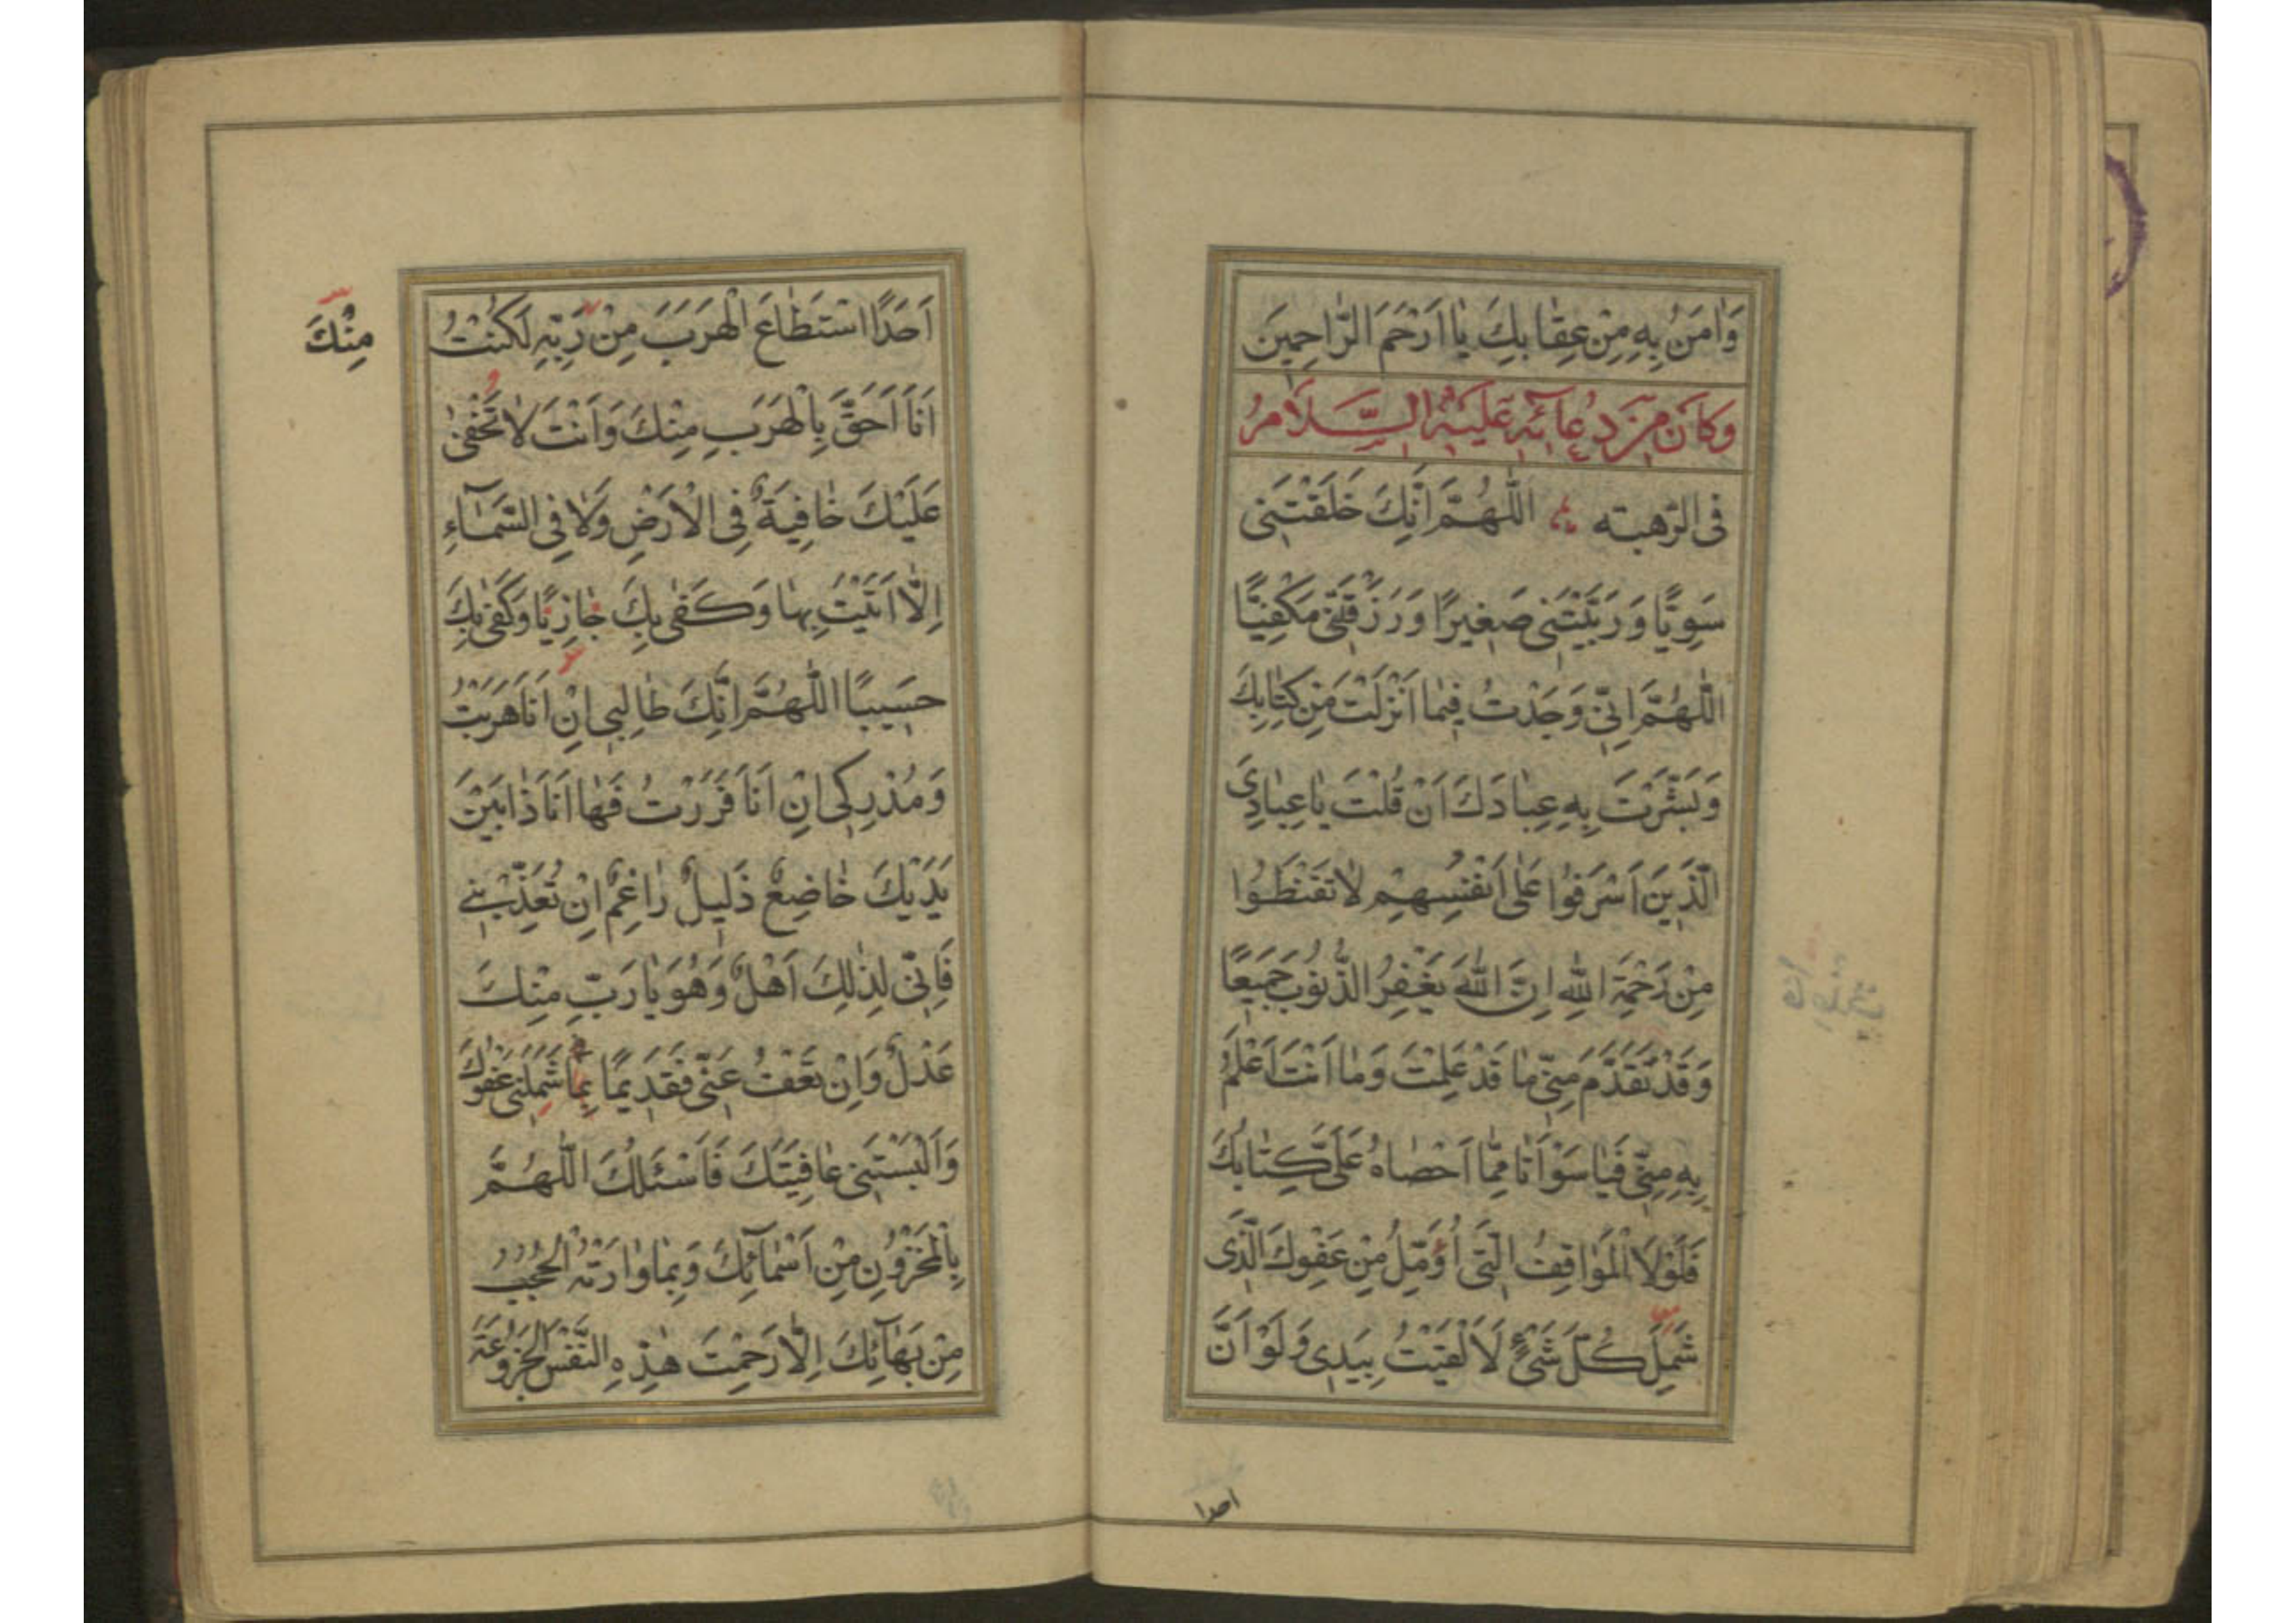 وَامَنُ بِهِ مِنْ عِقٰابِكَ يٰا اَرْحَمَ الرّٰاحِمِينَ
وَكَانَ مِنْ دُعَآئِهِ عَلَيْهِ السَّلَامُ
فى الرّهبته اَللّٰهُمَّ اِنَّكَ خَلَقْتَنى
سَوِيًّا وَرَبَّيْتَنى صَغيرًا وَرَزَقْتَنى مَكْفِيًّا
اَللّٰهُمَّ اِنّى وَجَدْتُ فيمٰا اَنْزَلْتَ مِنْ كِتٰابِكَ
وَبَشَّرْتَ بِهِ عِبٰادَكَ اَنْ قُلْتَ يٰا عِبٰادِىَ
الَّذينَ اَسْرَفُوا عَلٰى اَنْفُسِهِمْ لٰا تَقْنَطُوا
مِنْ رَحْمَةِ اللّٰهِ اِنَّ اللّٰهَ يَغْفِرُ الذُّنُوبَ جَميعًا
وَقَدْ تَقَدَّمَ مِنّى مٰا قَدْ عَلِمْتَ وَمٰا اَنْتَ اَعْلَمُ
بِهِ مِنّى فَيٰا سَوْاَتٰا مِمّٰا اَحْصٰاهُ عَلَىَّ كِتٰابُكَ
فَلَوْلَا الْمَوٰاقِفُ الَّتى اُؤَمِّلُ مِنْ عَفْوِكَ الَّذى
شَمِلَ كُلَّ شَىْءٍ لَاَلْقَيْتُ بِيَدى وَلَوْ اَنَّ
احدا
اَحَدًا اسْتَطٰاعَ الْهَرَبَ مِنْ رَبِّهِ لَكُنْتُ
مِنْكَ
اَنَا اَحَقَّ بِالْهَرَبِ مِنْكَ وَاَنْتَ لٰا تَخْفٰى
عَلَيْكَ خٰافِيَةٌ فِى الْاَرْضِ وَلٰا فِى السَّمٰآءِ
اِلّٰا اَتَيْتَ بِهٰا وَكَفٰى بِكَ جٰازِيًا وَكَفٰى بِكَ
حَسيبًا اَللّٰهُمَّ اِنَّكَ طٰالِبى اِنْ اَنَا هَرَبْتُ
وَمُدْرِكى اِنْ اَنَا فَرَرْتُ فَهٰا اَنَا ذٰا بَيْنَ
يَدَيْكَ خٰاضِعٌ ذَليلٌ رٰاغِمٌ اِنْ تُعَذِّبْنى
فَاِنّى لِذٰلِكَ اَهْلٌ وَهُوَ يٰا رَبِّ مِنْكَ
عَدْلٌ وَاِنْ تَعْفُ عَنّى فَقَديمًا بِمٰا شَمِلَنى عَفْوُكَ
وَاَلْبَسْتَنى عٰافِيَتَكَ فَاَسْئَلُكَ اَللّٰهُمَّ
بِالْمَخْزُونِ مِنْ اَسْمٰآئِكَ وَبِمٰا وٰارَتْهُ الْحُجُبُ
مِنْ بَهٰآئِكَ اِلّٰا رَحِمْتَ هٰذِهِ النَّفْسَ الْجَزُوعَةَ